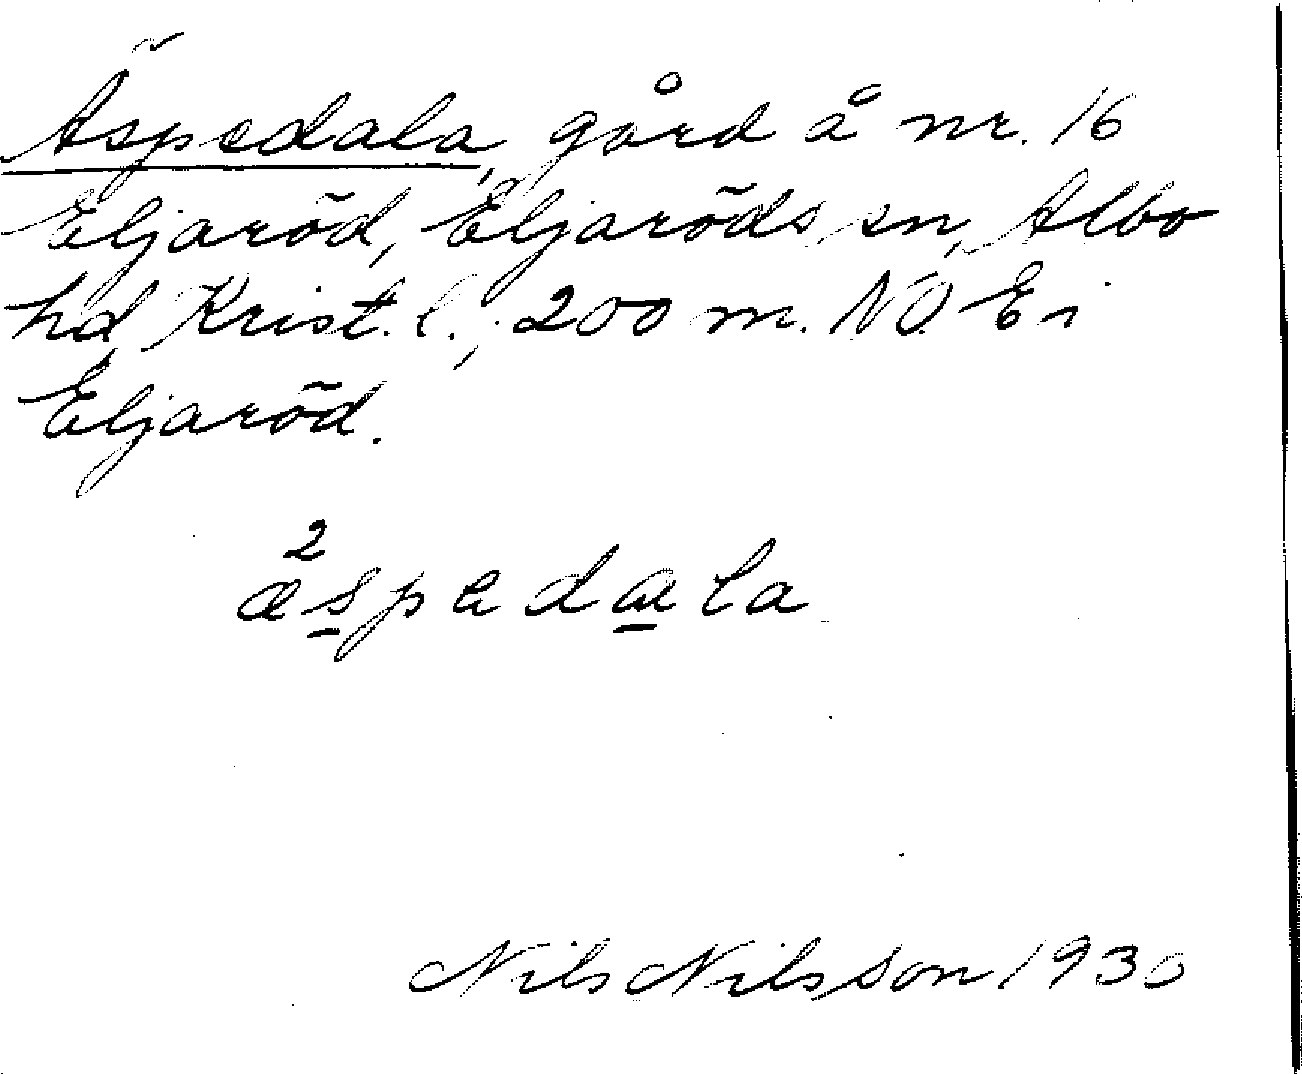 Äspedala, gård å nr. 16
Eljaröd, Eljaröds sn, Albo
hd Krist. l., 200 m. NO. E i
Eljaröd.
2
æspedala
Nils Nilsson 1930